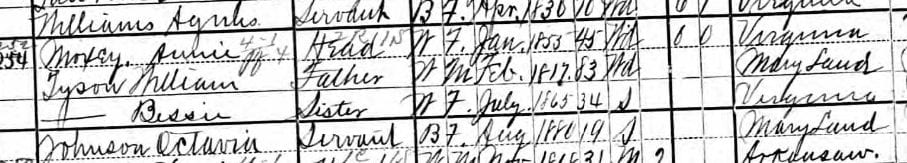 Williams Agnes Servant B F. Apr. 1830 70 Wd 6 1 Virginia
254 Moxley. Annie Head W F. Jan. 1855 45 Wd 0 0 Virginia
Tyson William Father W M Feb. 1817 83 Wd Mary Land
— Bessie Sister W F. July 1865 34 S Virginia
Johnson Octavia Servant B F. Aug 1880 19 S Mary Land
Arkansaw.